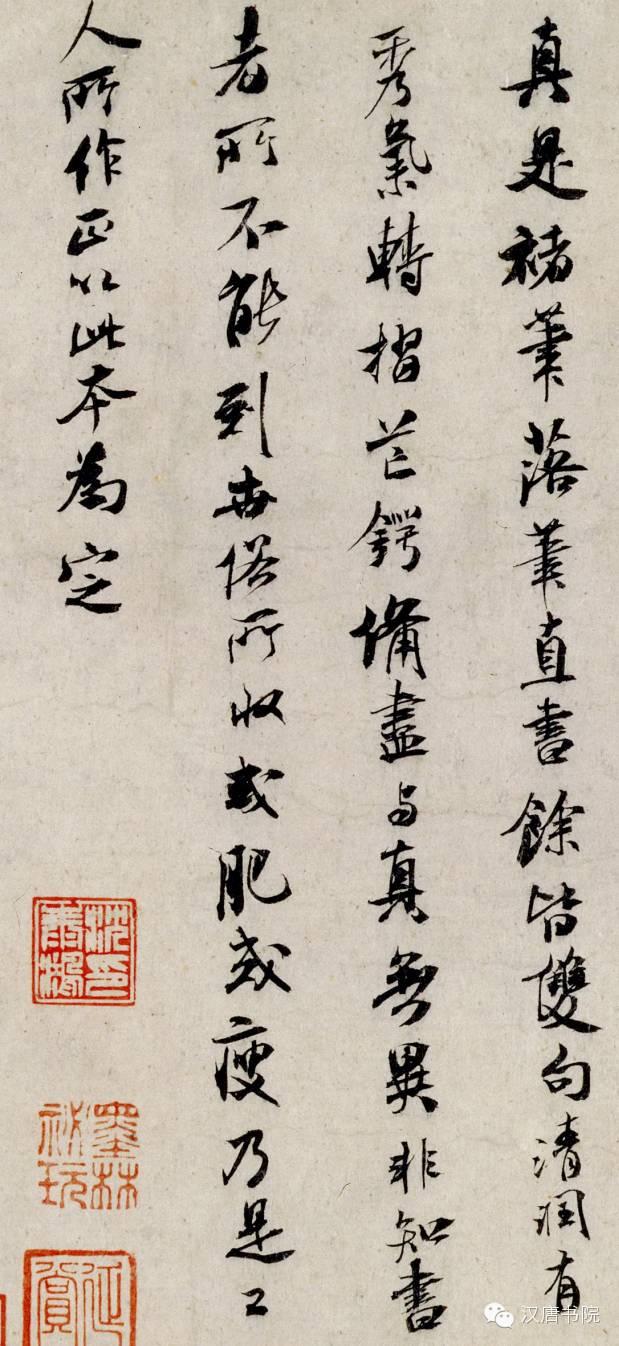 真是褚筆落筆直書餘皆雙句清潤有
秀氣轉摺芒鍔備盡与真無異非知書
者所不能到世俗所收或肥或瘦乃是工
人所作正以此本為定
墨林祕玩
汉唐书院